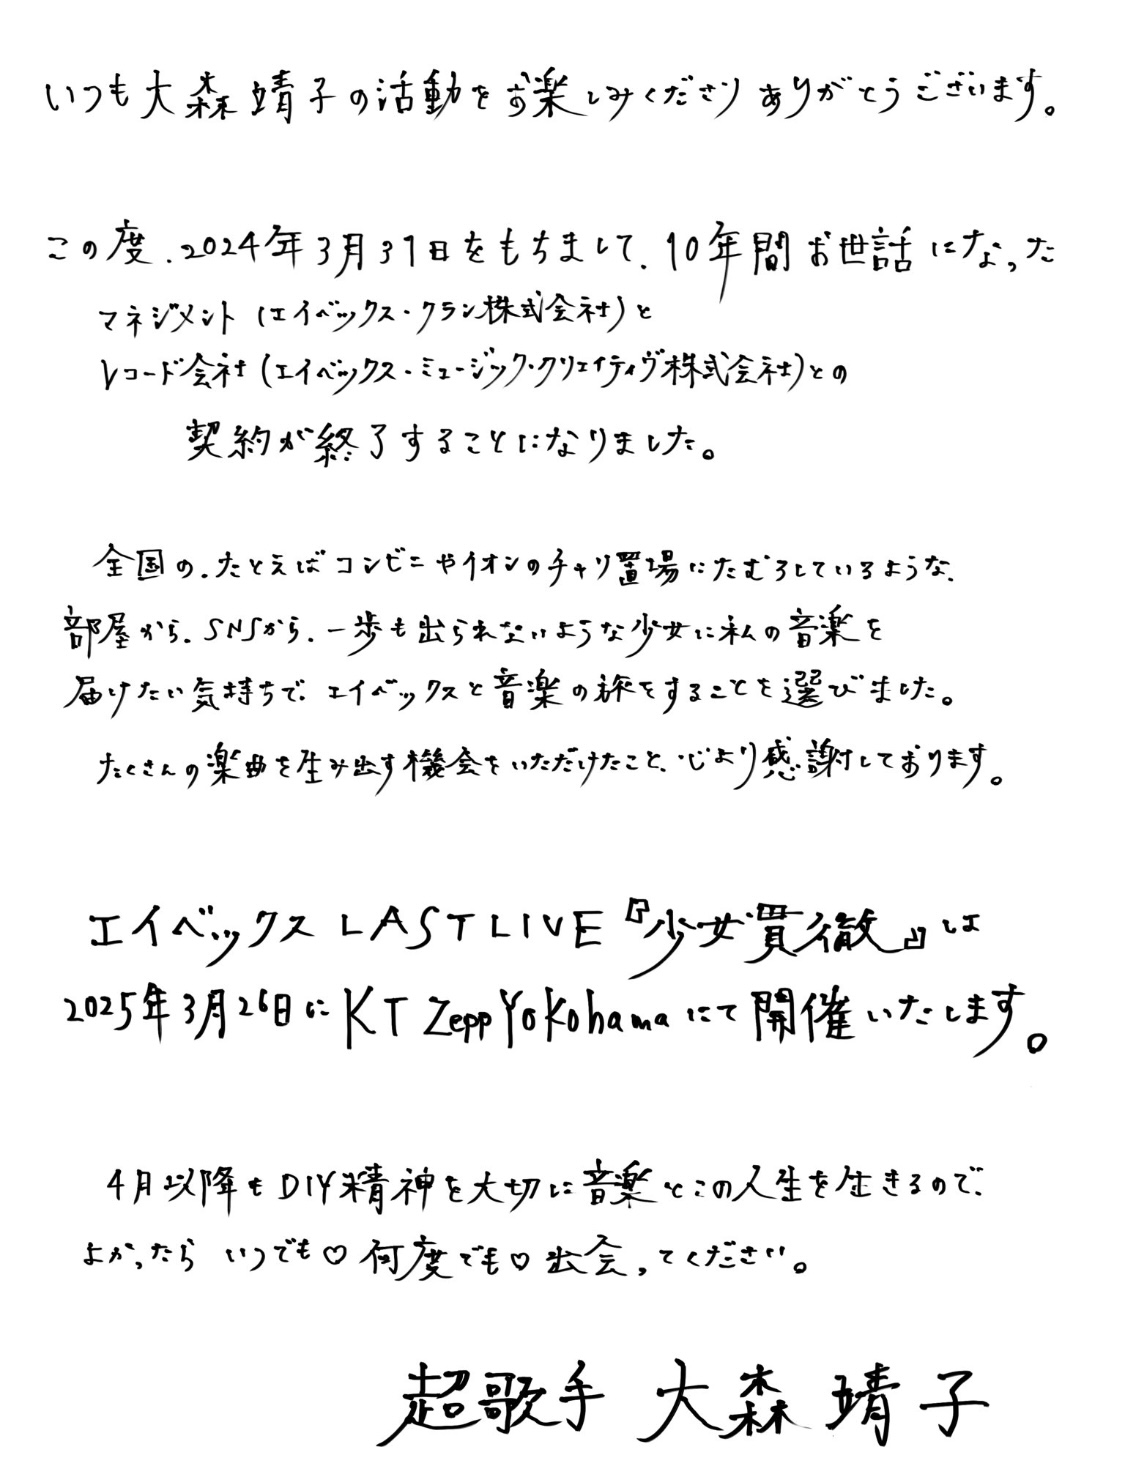 いつも大森靖子の活動をお楽しみくださりありがとうございます。
この度、2024年3月31日をもちまして、10年間お世話になった
マネジメント（エイベックス・クラン株式会社）と
レコード会社（エイベックス・ミュージック・クリエイティヴ株式会社）との
契約が終了することになりました。
全国の、たとえばコンビニやイオンのチャリ置場にたむろしているような、
部屋から、SNSから、一歩も出られないような少女に私の音楽を
届けたい気持ちで、エイベックスと音楽の旅をすることを選びました。
たくさんの楽曲を生み出す機会をいただけたこと、心より感謝しております。
エイベックス LAST LIVE『少女貫徹』は
2025年3月26日に KT Zepp Yokohama にて開催いたします。
4月以降も DIY精神を大切に音楽とこの人生を生きるので、
よかったら いつでも♡何度でも♡出会ってください。
超歌手 大森靖子